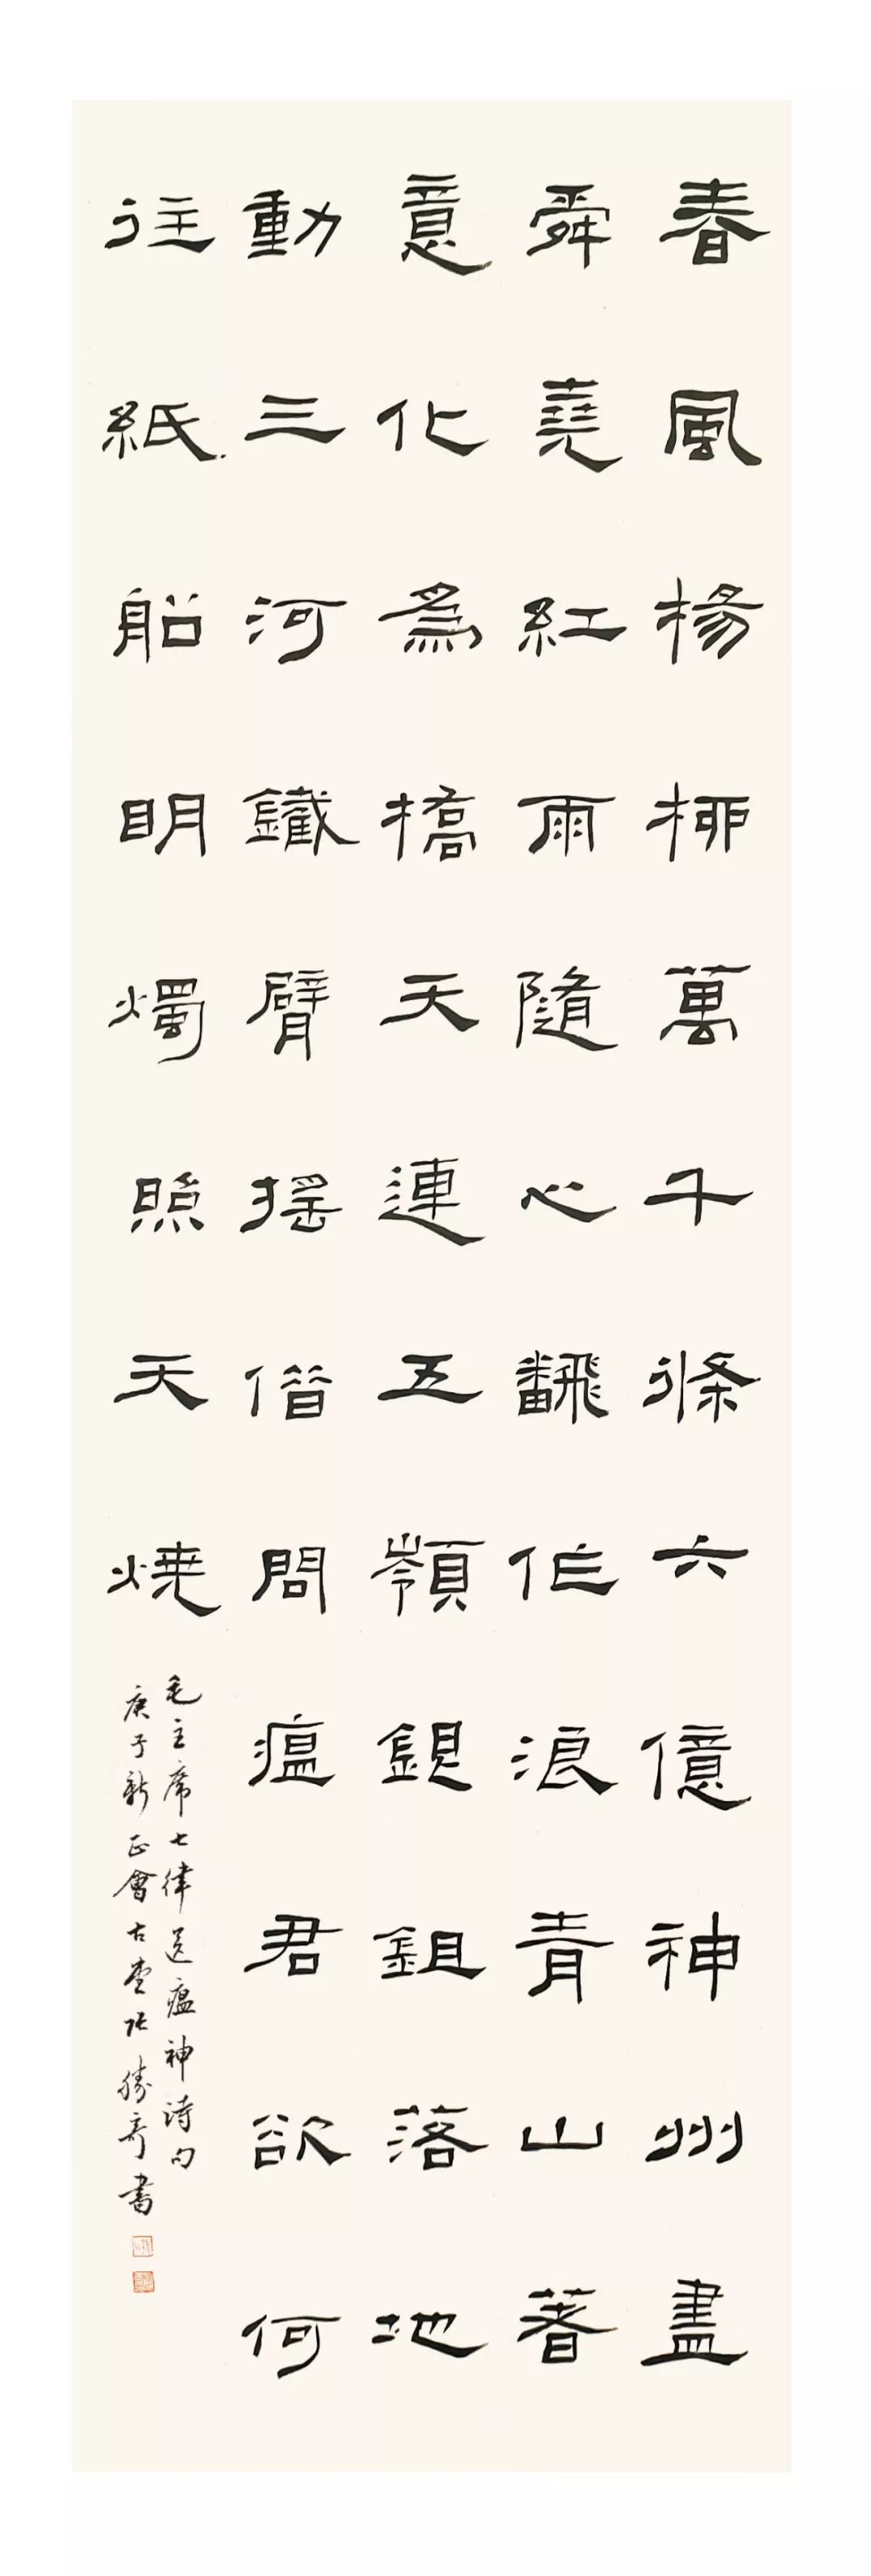 春風楊柳萬千條六億神州盡
舜堯紅雨隨心飜作浪青山著
意化為橋天連五嶺銀鉏落地
動三河鐵臂搖借問瘟君欲何
往紙船明燭照天燒
毛主席七律送瘟神诗句
庚子新正會古堂张勝奇書